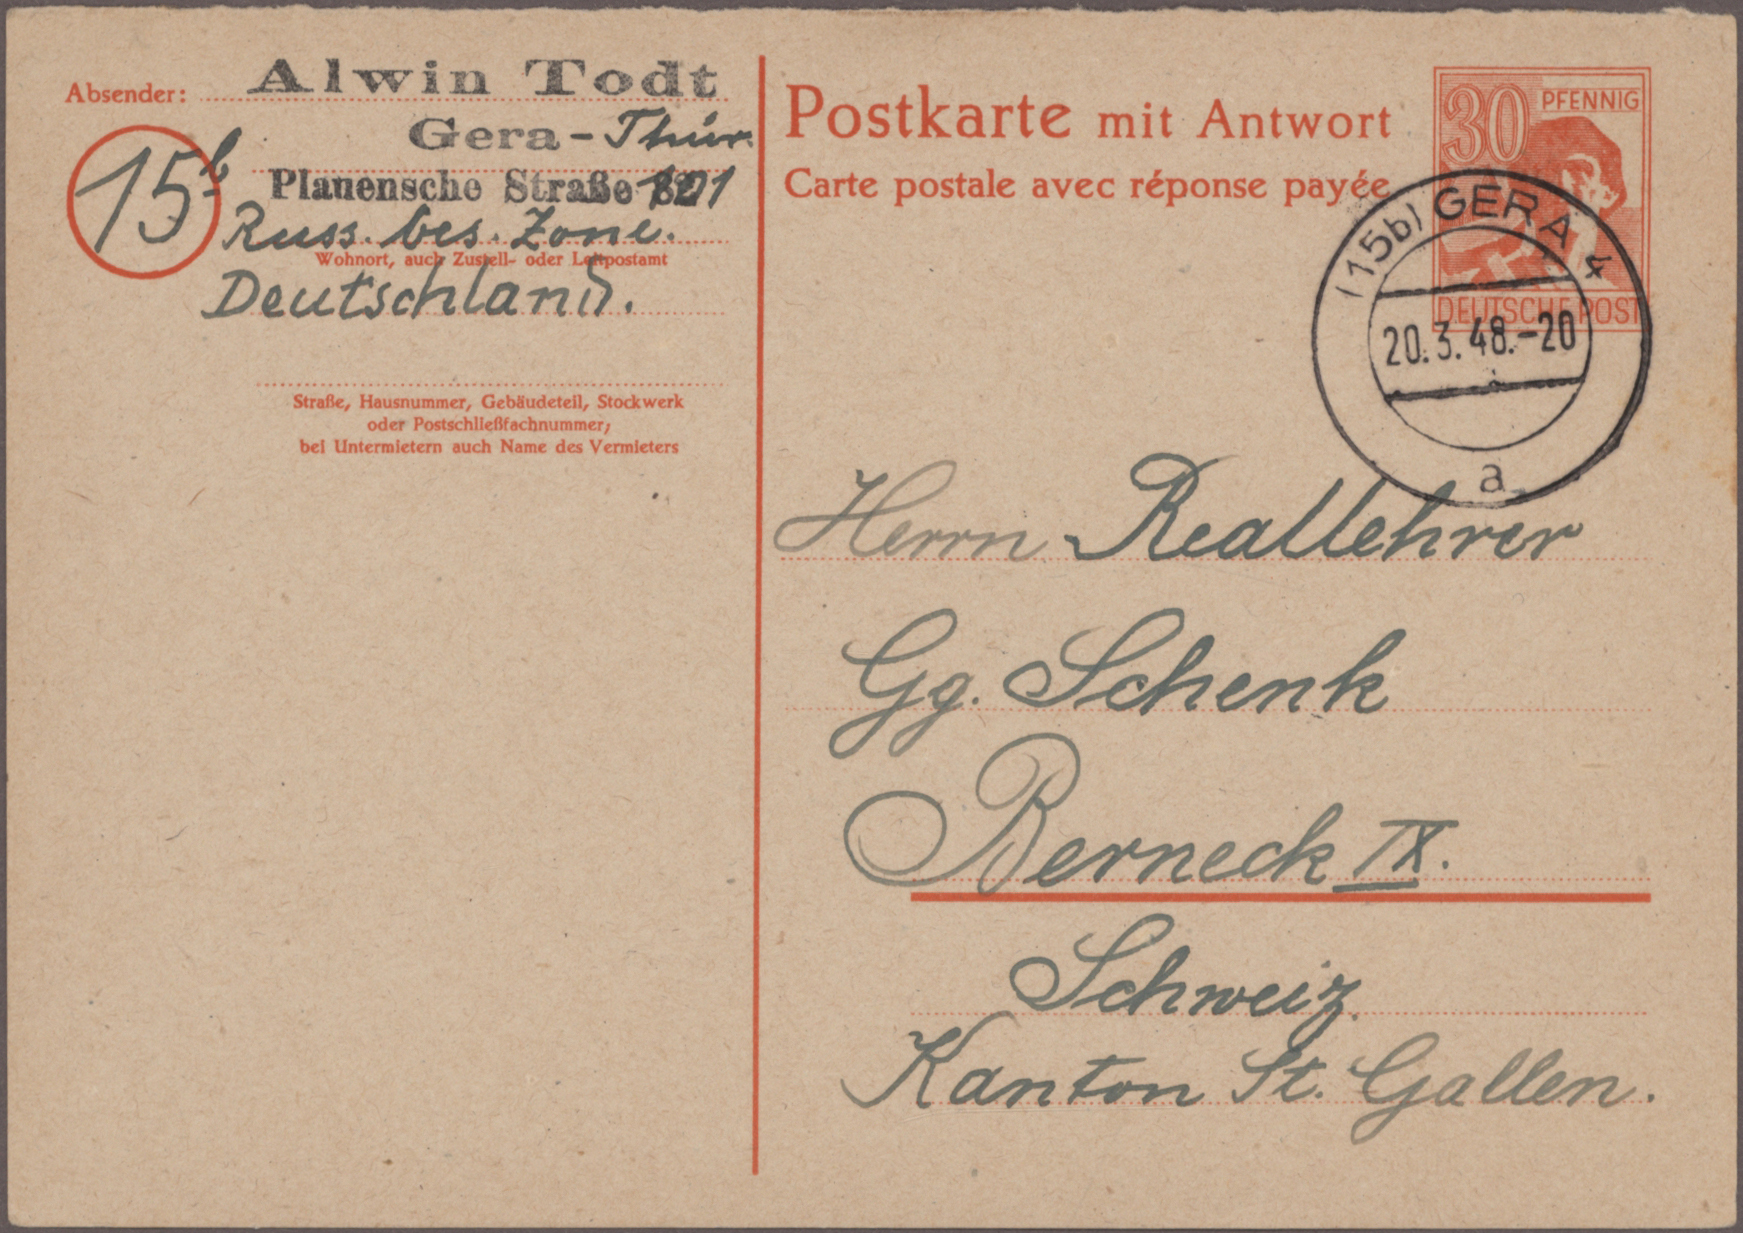 Absender: Alwin Todt
Gera - Thür.
15b
Plauensche Straße
Russ. bes. Zone.
Wohnort, auch Zustell- oder Leitpostamt
Deutschland.
Straße, Hausnummer, Gebäudeteil, Stockwerk
oder Postschließfachnummer;
bei Untermietern auch Name des Vermieters
Postkarte mit Antwort
Carte postale avec réponse payée
30 PFENNIG
DEUTSCHE POST
(15b) GERA 4
20.3.48.-20
a
Herrn Reallehrer
Gg. Schenk
Berneck IX.
Schweiz.
Kanton St. Gallen.